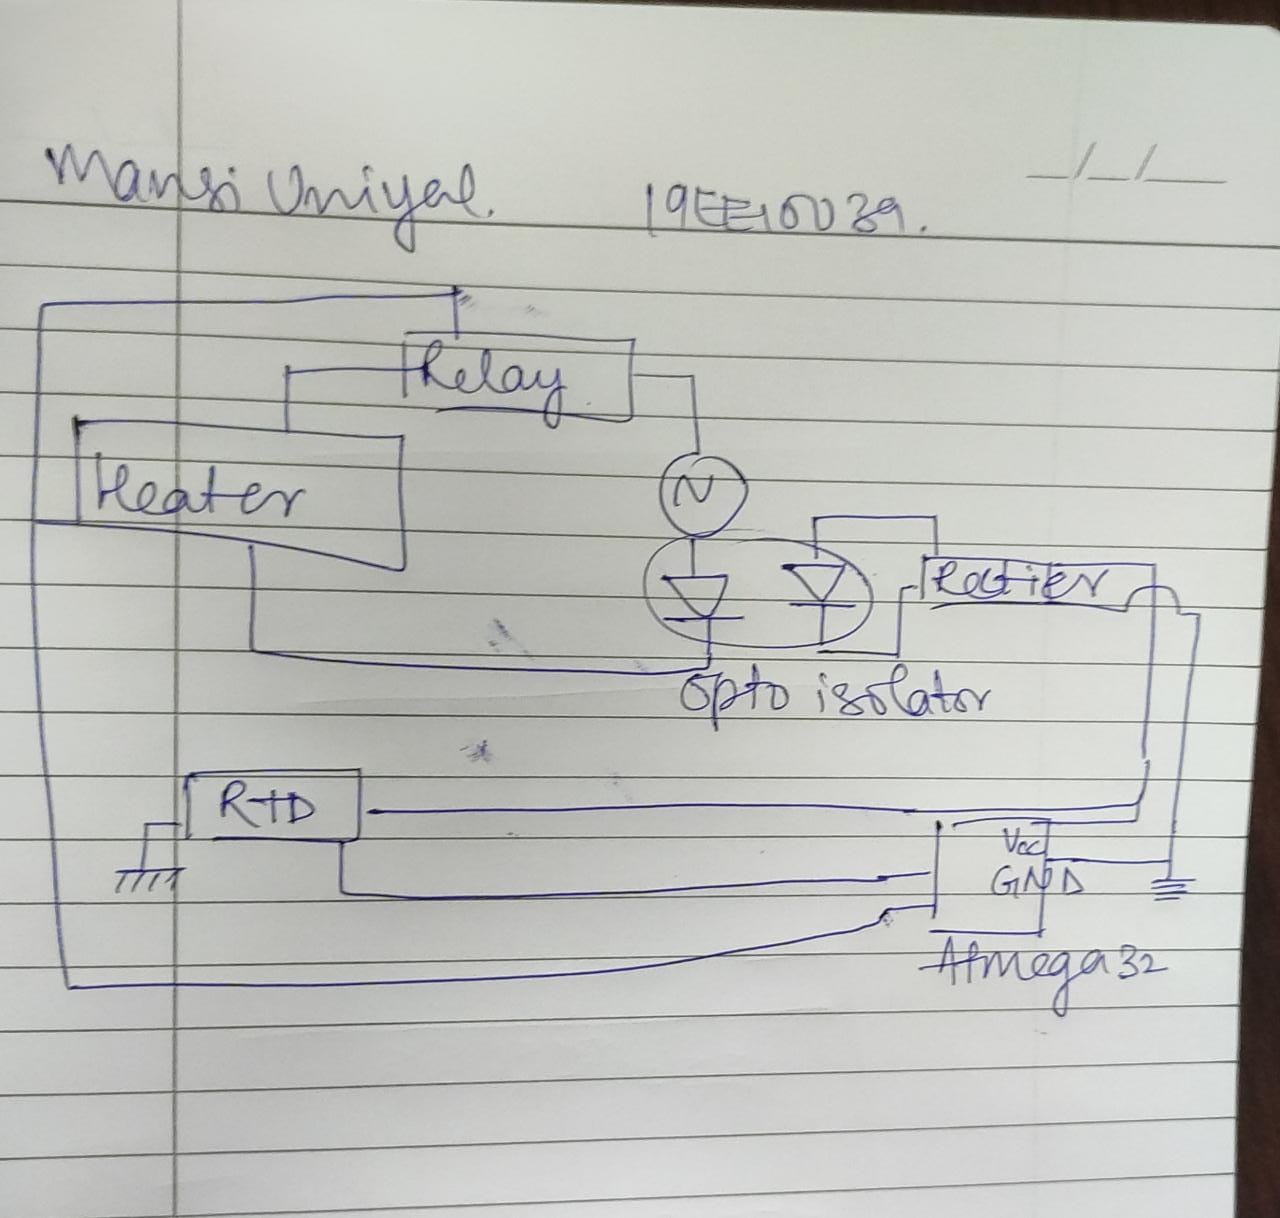 Mansi Uniyal. 19EE10039.
_/_/__
Relay
Heater
~
Rectier
Opto isolator
RTD
Vcc
GND
Atmega32